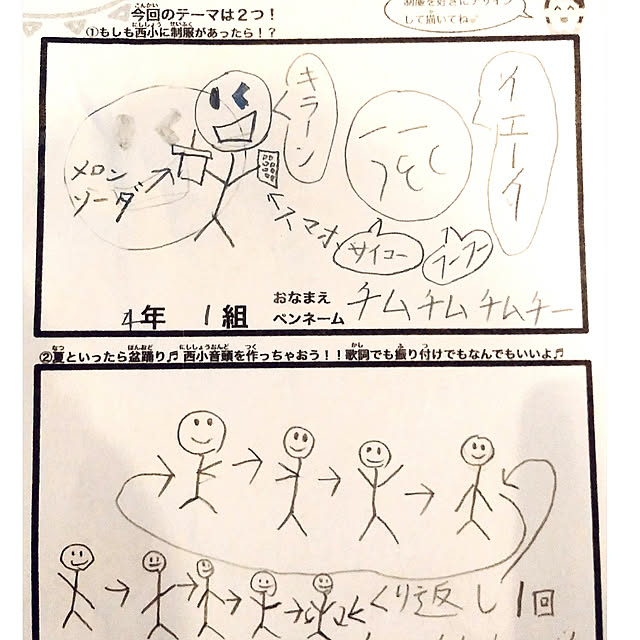 制服を好きにデザイン
して描いてね
今回のテーマは2つ！
①もしも西小に制服があったら！？
キラーン
イエーイ
メロン
ソーダ
スマホ
サイコー
4年 1組
おなまえ
ペンネーム
チムチムチムチー
②夏といったら盆踊り♬ 西小音頭を作っちゃおう！！歌詞でも振り付けでもなんでもいいよ♬
くり返し1回